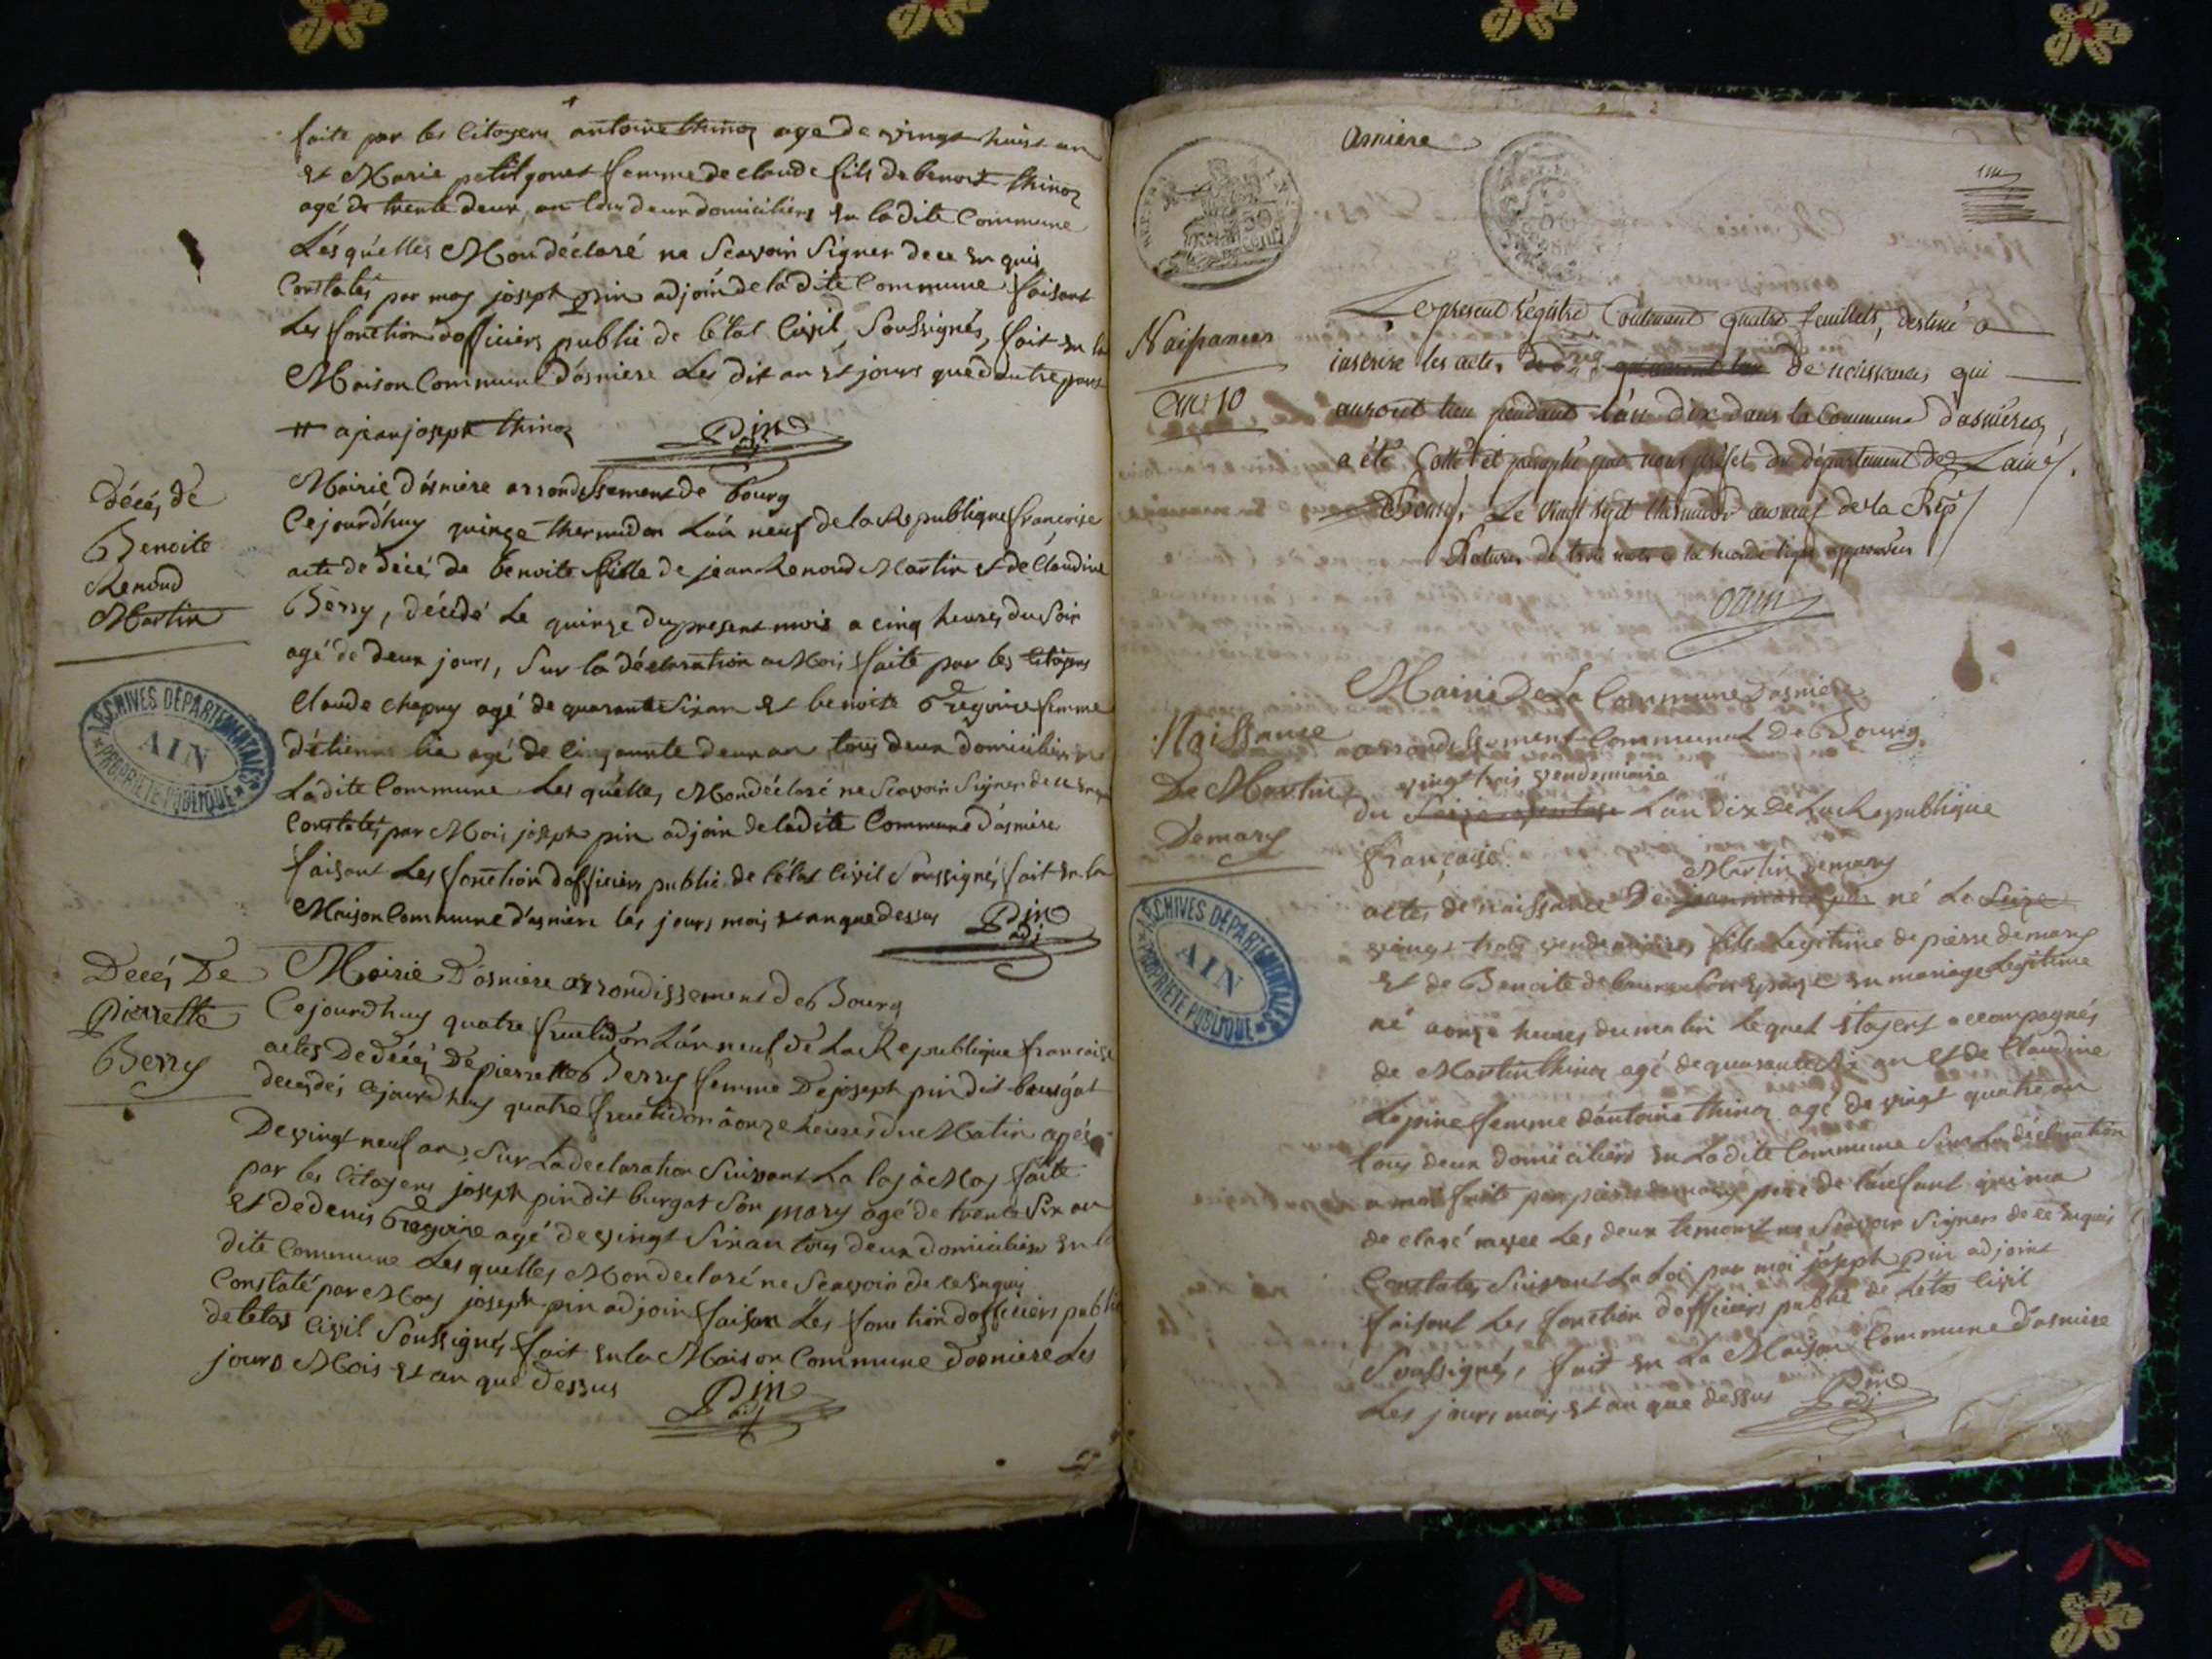 faite par les Citoyens antoine thinoz age de vingt huist an
et Marie petitgonet femme de claude fils de benoit thinoz
agé de trente deux an tous deux domiciliers en ladite Commune
Lesquélles Mon déclaré ne Scavoir Signer de ce enquis
Constatés par moy joseph pin adjoin de ladite Commune faisant
Les fonction dofficiers public de l'état Civil, Soussignés, fait en la
Maison Commune d'asniere Les dit an et jours que d'autre pars
# a jean joseph thinoz
Pin
adj
décés de
Benoite
Renoud
Martin
Mairie d'asniere arrondissement de bourg
Cejourd'huy quinze thermidor L'an neuf de la Republique francoise
acte de décé, de benoite fille de jean Renoud Martin et de Claudine
Berry, décédé Le quinze du present mois a cinq heures du Soir
agé de deux jours, Sur la déclaration a Moi faite par les Citoyens
Claude chapuy agé de quarante Sixan et benoite Gregoire femme
d'étienne lie agé de Cinquante deux an tous deux domiciliers en
Ladite Commune Les quélles Mon déclaré ne Scavoir Signer de ce enquis
Constatés par Moi joseph pin adjoin de ladite Commune d'asniere
faisant Les fonction dofficiers public de l'état Civil Soussignés fait en la
Maison Commune d'asniere les jours mois et an que dessus
Pin
adj
Décés De
Pierrette
Berry
Mairie D'asniere arrondissement de Bourg
Cejourdhuy quatre fructidor L'an neuf de La Republique francoise
actes De décés De pierrette Berry femme De joseph pin dit bourgat
decedés cejourdhuy quatre fructidor à onze heures du Matin agés
De vingt neuf an, Sur La declaration Suivant La loy à Moy faite
par les Citoyens joseph pin dit burgat Son mary agé de trente Six an
et de denis Gregoire agé de vingt Sixan tous deux domiciliers en la
dite Commune Les quelles Mon declaré ne Scavoir de ce enquis
Constaté par Moy joseph pin adjoin faisan Les fonction dofficiers public
de letat Civil Soussignés fait en la Maison Commune dasniere Les
jours Mois et an que dessus
Pin
adj
Asniere
Naissances
An 10
Le present Régistre Contenant quatre feuillets, destiné a
inscrire les actes de naissances qui
auront lieu pendant l'an dix dans la Commune d'asnieres,
a été Cotté et paraphé par nous préfet du département de L'ain.
Bourg, Le vingt sept thermidor an neuf de la Rép
Ratures de trois mots a la seconde ligne approuvées
Ozun
Naissance
De Martin
Demary
Mairie De La Commune Dasniere
arrondissement Communal De Bourg
vingt trois vendemiaire
du L'an dix De La Republique
française.
Martin demary
actes de naissance De né Le Seize
vingt trois vendemiaire, fils Legitime de pierre demary
et de Benoite Son epouse en mariage Legitime
né a onze heures du matin Lequel étoyent accompagnés
de Martin thinoz agé de quarante Six an et de Claudine
Lepine femme d'antoine thinoz agé de vingt quatre an
tous deux domiciliers en Ladite Commune Sur La déclaration
a moi faite par pierre demary pere de l'anfant qui ma
declaré avec Les deux temoins ne Scavoir Signer de ce enquis
Constatés Suivant La Loi par moi joseph pin adjoint
faisant Les fonction dofficiers public de Létas Civil
Soussignés, fait en La Maison Commune d'asniere
Les jours mois et an que dessus
Pin
adj
ARCHIVES DÉPARTEMENTALES
AIN
PROPRIÉTÉ PUBLIQUE
ARCHIVES DÉPARTEMENTALES
AIN
PROPRIÉTÉ PUBLIQUE